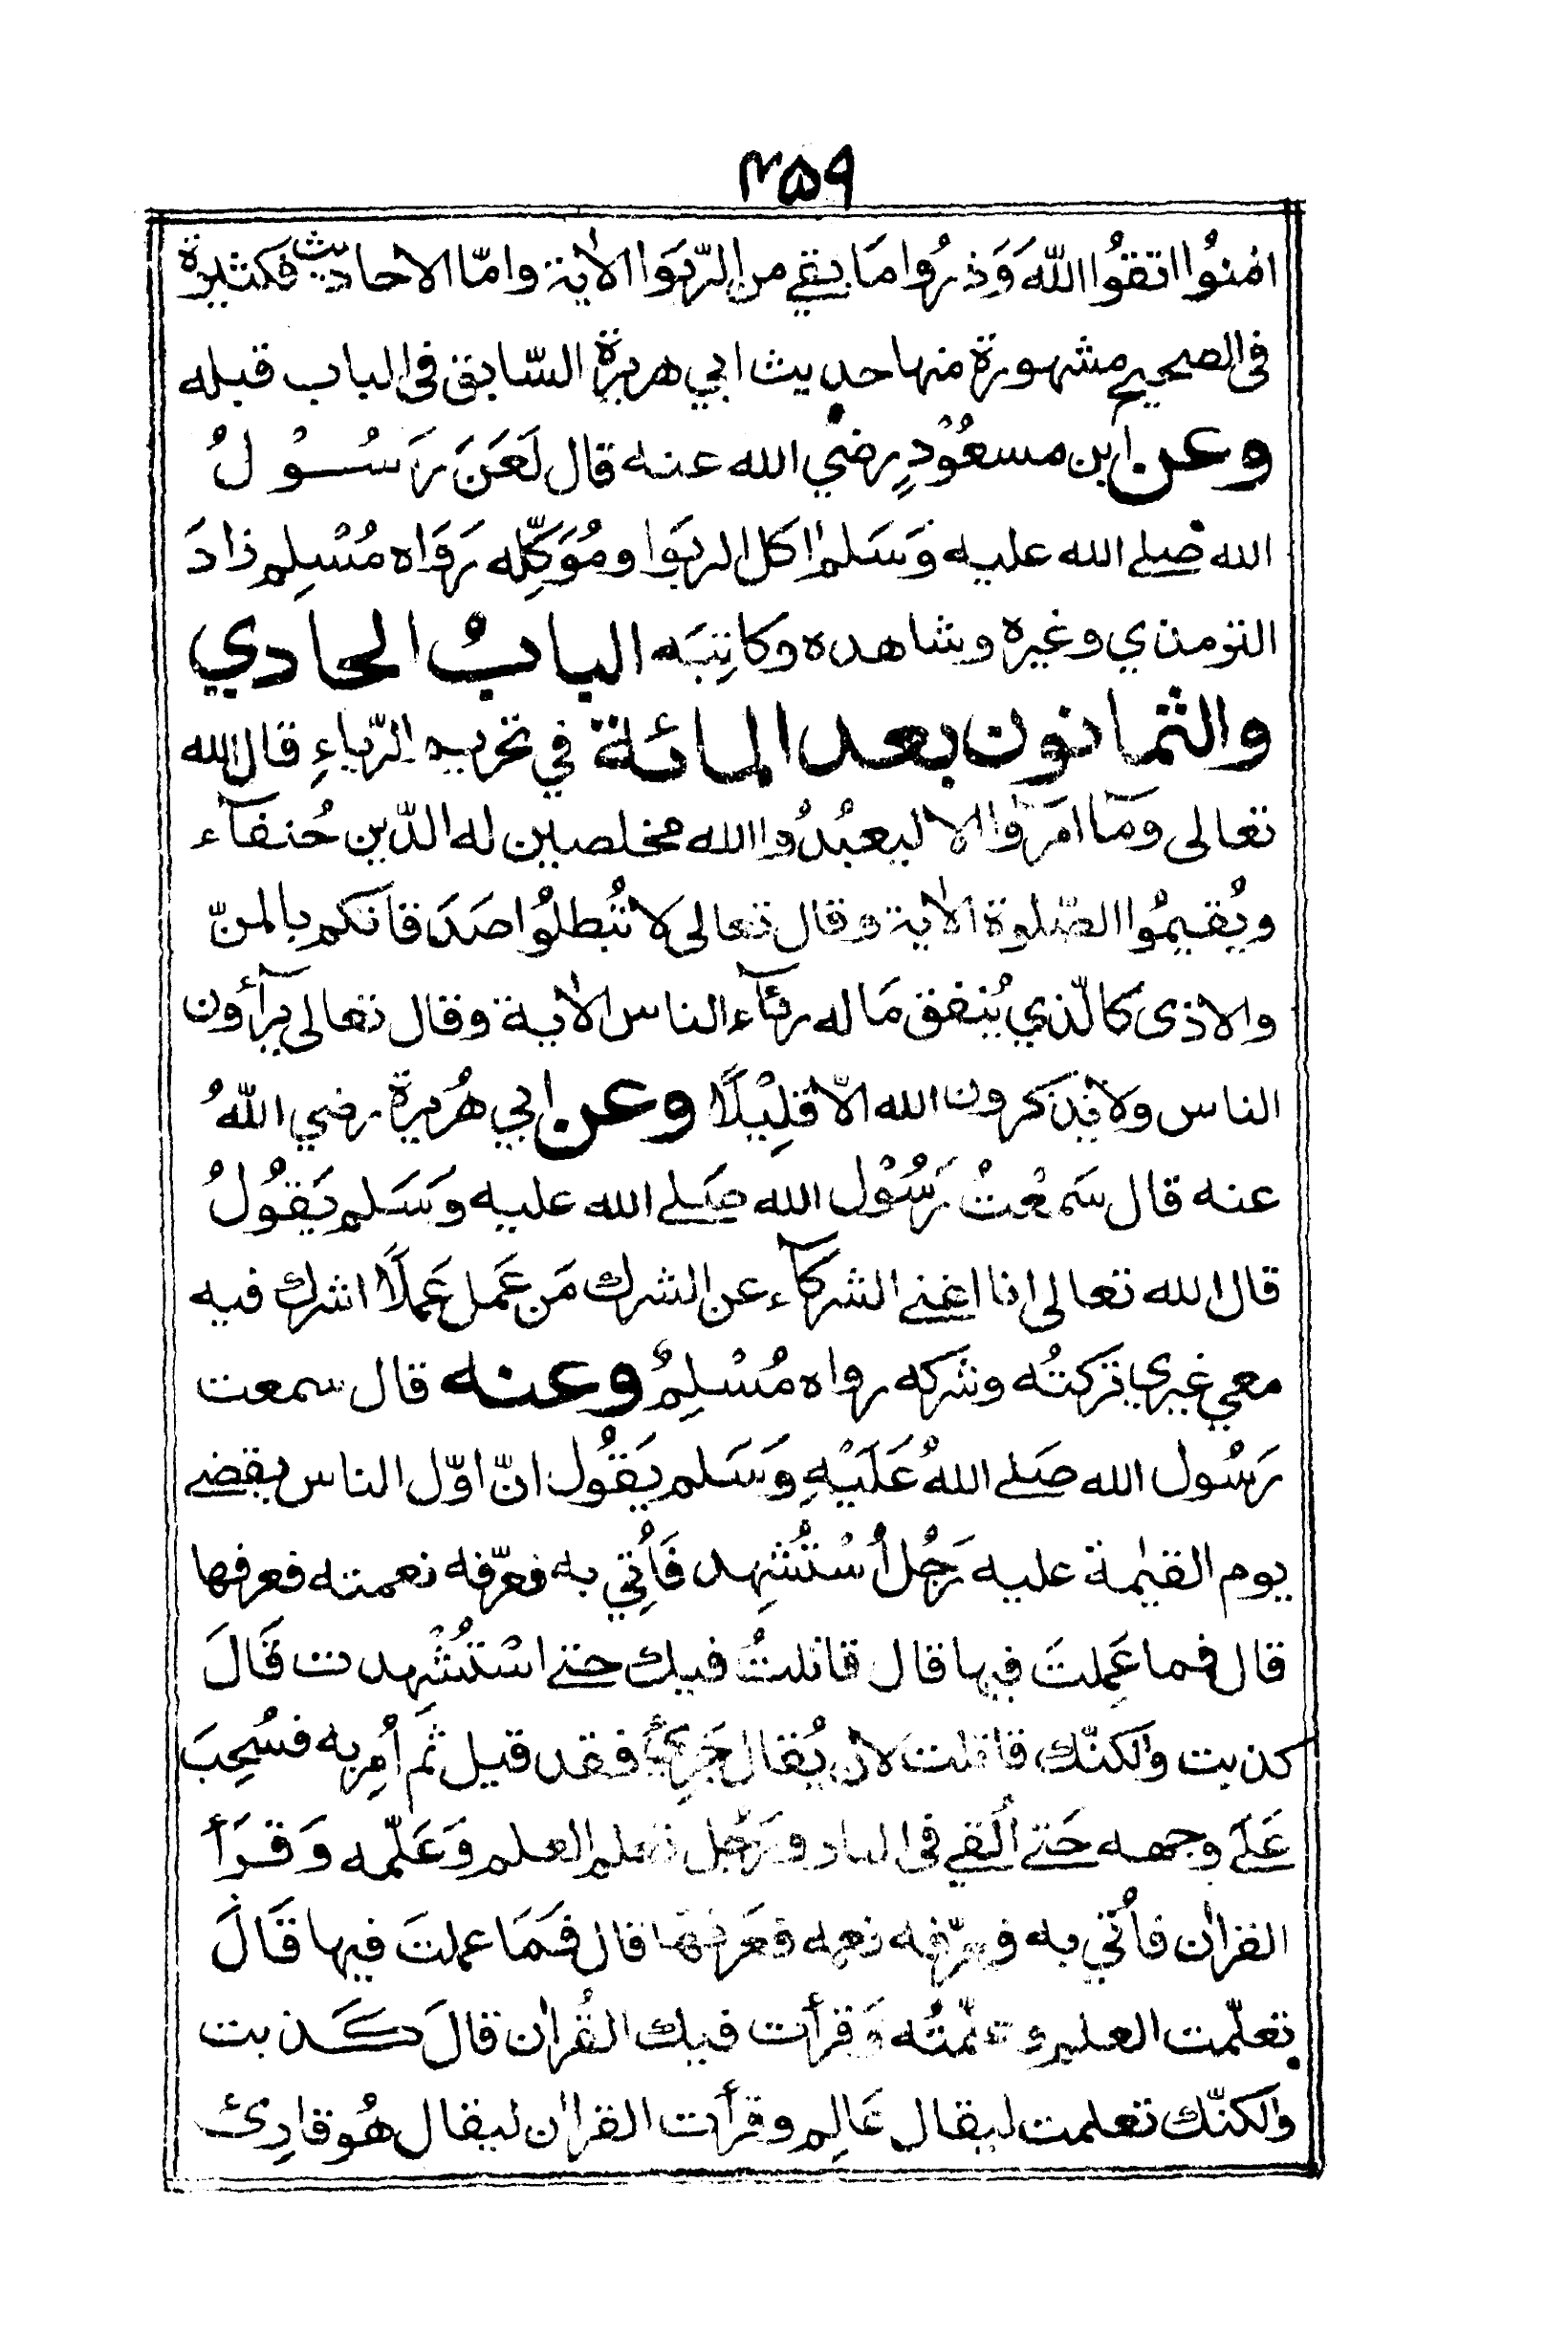 ۴۵۹
اٰمنوُا اتقوُا اللّٰهَ وَذرُوا مَا بقي من الرّبَوا الاٰية وامّا الاحاديث فكثيرة
فى الصحيح مشهورة منها حديث ابي هريرة السّابق فى الباب قبله
وعن ابن مسعُوْدٍ رضي الله عنه قال لَعَنَ رَسُوْلُ
الله صلے الله عليه وَسَلم اٰكل الربَوا ومُوَكِّله رَوَاه مُسْلِم زادَ
الترمذي وغيره وشاهده وكاتِبَه البابُ الحادي
والثمانون بعد المائة في تحريم الرّياءِ قال الله
تعالى ومَآ امرَوا الا ليعبُدُوا الله مخلصين له الدّين حُنفآء
ويُقيمُوا الصّلوة الاٰية وقال تعالى لا تُبطلوُا صَدَقاتكم بالمنّ
والاذى كالّذي يُنفق مَاله رئآء الناس الاٰية وقال تعالى يرآؤن
الناس وَلا يَذكرون الله الّا قلِيْلًا وعن ابي هُريرة رضي اللّٰهُ
عنه قال سَمعْتُ رَسُوْل الله صَلے الله عليه وَسَلم يَقوُلُ
قال الله تعالى انا اغنے الشركآء عن الشرك مَن عَمل عَملًا اشرك فيه
معي غيري تركتُه وشَركه رواه مُسْلِمٌ وعنه قال سمعت
رَسُول الله صَلے اللهُ عَلَيْهِ وَسَلم يَقُول انّ اوّل الناس يقضے
يوم القيٰمة عليه رَجُل اُسْتُشْهِد فَاُتِي به فعرّفه نعمته فعرفها
قال فما عَمِلتَ فيها قال قاتلتُ فيك حتے اسْتُشْهِدت قَالَ
كذبت ولٰكنّك قاتلت لان يُقال جَرِيْءٌ فقد قيل ثمَ اُمِر به فسُحِبَ
عَلَے وجهه حَتے اُلقي فى النار وَرَجُل تعلم العلم وَعَلّمه وَقَرَأَ
القراٰن فاُتي به فعرّفه نعمه فعَرفهَا قال فمَا عملتَ فيها قَالَ
تعلّمت العلم وعلّمتُه وَقرأت فيك القُراٰن قالَ كَذبت
ولٰكنّك تعلمت ليقال عَالِم وقرأت القراٰن ليقال هُو قارِئ